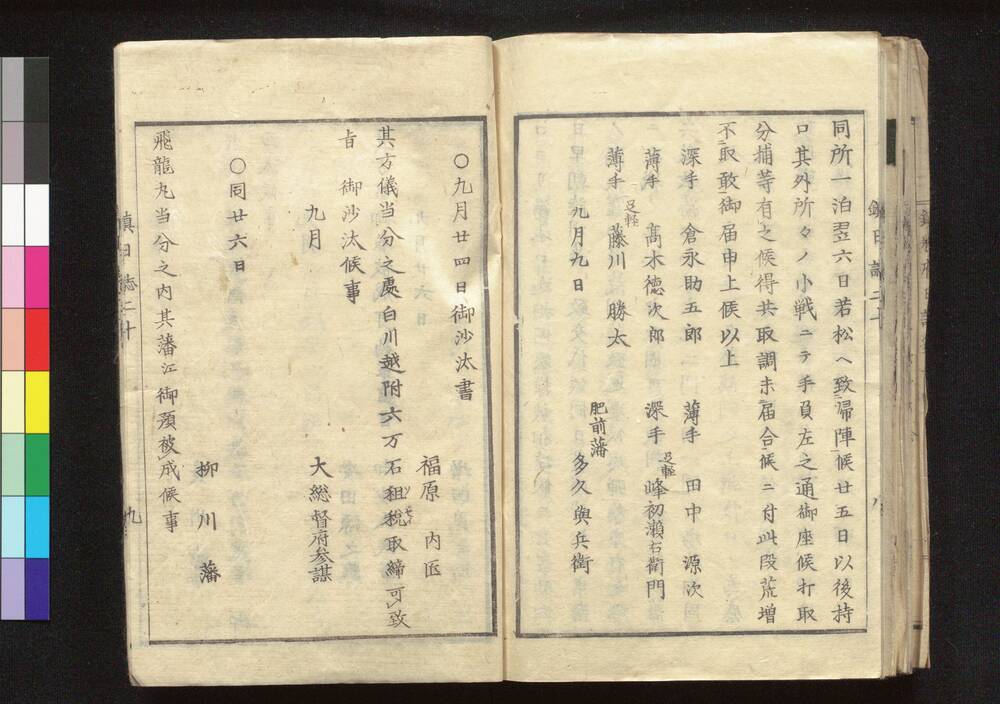 同所一泊翌六日若松ヘ致帰陣候廿五日以後持
口其外所々ノ小戦ニテ手負左之通御座候打取
分捕等有之候得共取調未届合候ニ付此段荒増
不取敢御届申上候以上
深手 倉永助五郎 薄手 田中源次
薄手 髙木徳次郎 深手 足軽 峰初瀬右衛門
薄手 足軽 藤川勝太
九月九日 肥前藩 多久與兵衛
○九月廿四日御沙汰書
福原内匠
其方儀当分之處白川越附六万石租税取締可致
旨 御沙汰候事
九月 大総督府参謀
○同廿六日
柳川藩
飛龍丸当分之内其藩江御預被成候事
鎮日誌二十 九